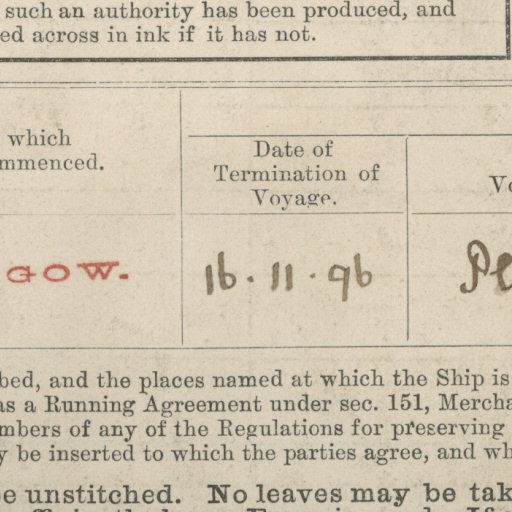 such an authority has been produced, and
ed across in ink if it has not.
which
mmenced.
Date of
Termination of
Voyage.
GOW.
16.11.96
bed, and the places named at which the Ship is
as a Running Agreement under sec. 151, Mercha
mbers of any of the Regulations for preserving
y be inserted to which the parties agree, and wh
be unstitched. No leaves may be tak